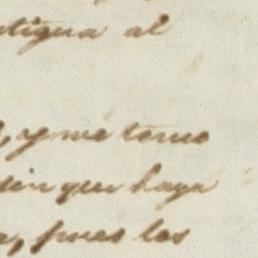 ntigua al
, y me temo
sin que haya
, pues los